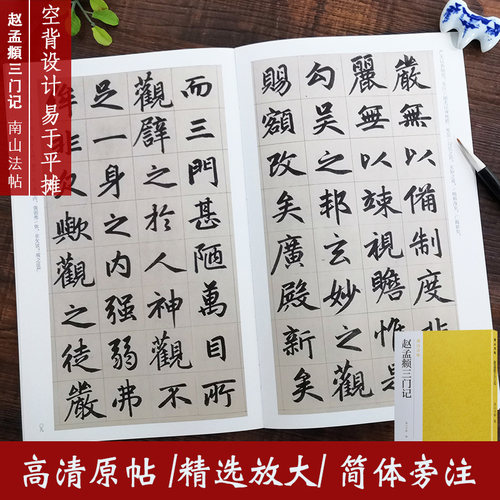 空背设计 易于平摊
赵孟頫三门记 南山法帖
嚴無以備制度非
麗無以竦視瞻惟是
勾吴之邦玄妙之觀
賜額改矣廣殿新矣
而三門甚陋萬目所
觀譬之於人神觀不
足一身之内强弱弗
侔非欠歟觀之徒嚴
赵孟頫三门记
高清原帖/精选放大/简体旁注